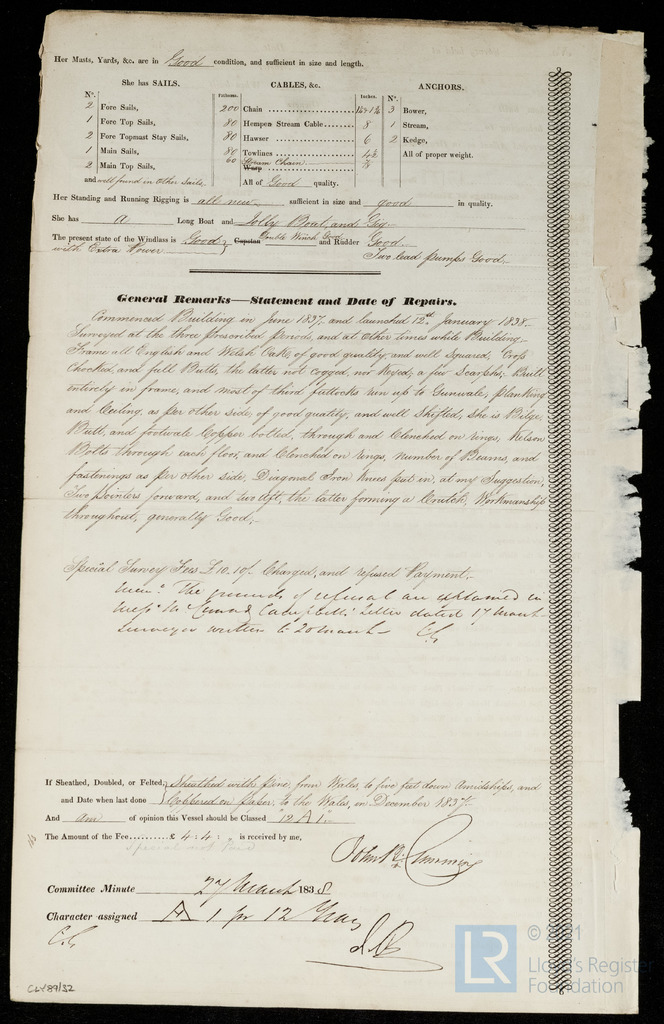 Her Masts, Yards, &c. are in Good condition, and sufficient in size and length.
She has SAILS.
CABLES, &c.
ANCHORS.
N°.
Fathoms.
Inches.
N°.
2 Fore Sails,
200 Chain
3 Bower,
1 Fore Top Sails,
80 Hempen Stream Cable 8
1 Stream,
2 Fore Topmast Stay Sails,
80 Hawser 6
2 Kedge,
1 Main Sails,
80 Towlines 4½
All of proper weight.
2 Main Top Sails,
60 Stream Chain Warp ⅞
and well found in other Sails.
All of Good quality.
Her Standing and Running Rigging is all new sufficient in size and good in quality.
She has A Long Boat and Jolly Boat, and Gig.
The present state of the Windlass is Good Capstan Double Winch Good and Rudder Good.
with Extra Power
Two lead pumps Good.
General Remarks—Statement and Date of Repairs.
Commenced Building in June 1837, and launched 12th January 1838.
Surveyed at the three prescribed Periods, and at other times while Building.
Frame all English and Welsh Oak, of good quality, and well Squared; Cross
Chocked and full Butts, the latter not cogged, nor Keyed; a few Scarphs; Built
entirely in frame, and most of third futtocks run up to Gunwale, planking
and Ceiling, as per other side, of good quality, and well Shifted, she is Bilge,
Butt, and footwale Copper bolted, through and Clenched on rings, Kelson
Bolts through each floor, and Clenched on rings, number of Beams, and
fastenings as per other side, Diagonal Iron knees put in, at my Suggestion,
Two pointers forward, and two aft, the latter forming a Crutch, Workmanship
throughout, generally Good.
Special Survey Fees £10.10/- Charged, and refused Payment.
Mem° The grounds of refusal are explained in
Messrs Campbell's letter dated 17 March
Surveyor written to 20 March CG
If Sheathed, Doubled, or Felted, Sheathed with pine, from Wales, to five feet down Amidships, and
and Date when last done Coppered on paper, to the Wales, in December 1837.
And am of opinion this Vessel should be Classed 12 A 1.
The Amount of the Fee £ 4 : 4 : is received by me,
special not Paid
John
Committee Minute 27 March 1838
Character assigned A 1 for 12 Years
CG
CLY89/32
LR
© 2021
Lloyd's Register
Foundation